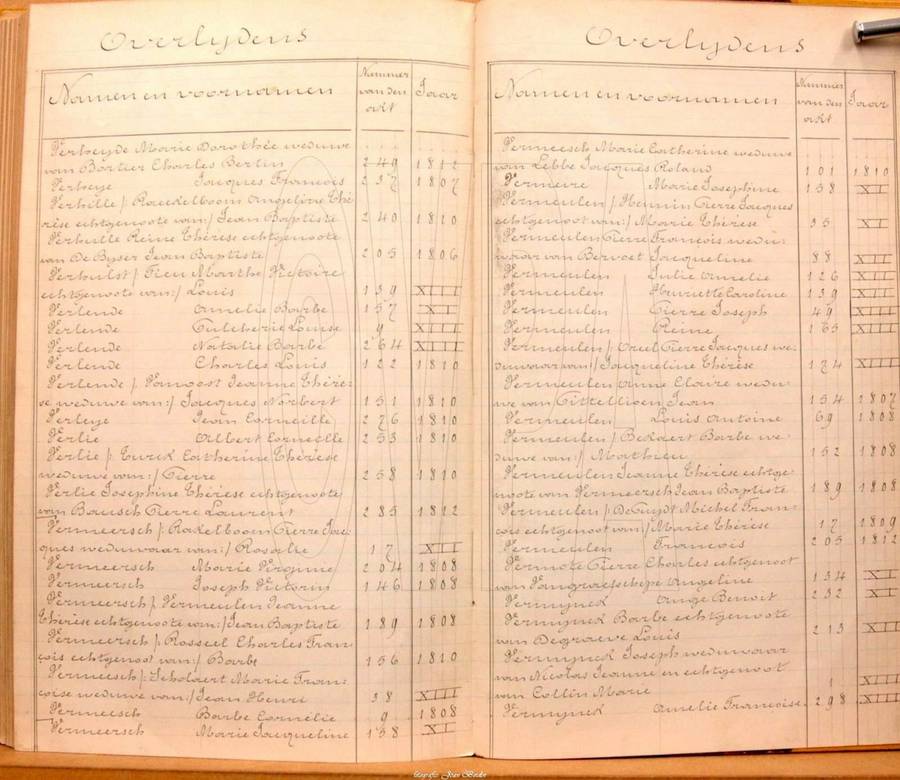 Overlydens
Namen en voornamen Nummer van den akt Jaar
Verheyde Marie Dorothée weduwe
van Bortier Charles Bertin 249 1812
Verheye Jacques Francois 237 1807
Verhille /: Raeckelboom Angeline Thé
rèse echtgenoote van:/ Jean Baptiste 240 1810
Verhulle Reine Thérèse echtgenoote
van De Byser Jean Baptiste 205 1806
Verhulst /: Pieu Marthe Victoire
echtgenoote van:/ Louis 139 XIII
Verlende Amelie Barbe 157 XI
Verlende Louise 9 XIII
Verlende Natalie Barbe 264 XIIII
Verlende Charles Louis 122 1810
Verlende /: Vanoost Jeanne Thérè-
se weduwe van:/ Jacques Norbert 151 1810
Verleye Jean Corneille 276 1810
Verlie Albert Corneille 253 1810
Verlie /: Turck Catherine Thérèse
weduwe van:/ Pierre 258 1810
Verlie Josephine Thérèse echtgenoote
van Bausch Pierre Laurent 285 1812
Vermeersch /: Rakelboom Pierre Jac-
ques weduwaar van:/ Rosalie 17 XII
Vermeersch Marie Virginie 204 1808
Vermeersch Joseph Victorin 146 1808
Vermeersch /: Vermeulen Jeanne
Thérèse echtgenoote van:/ Jean Baptiste 189 1808
Vermeersch /: Rosseel Charles Fran-
çois echtgenoot van:/ Barbe 156 1810
Vermeesch /: Scholaert Marie Fran-
çoise weduwe van:/ Jean Henri 38 XIII
Vermeesch Barbe Cornélie 9 1808
Vermeersch Marie Jacqueline 138 XI
Overlydens
Namen en voornamen Nummer van den akt Jaar
Vermeesch Marie Catherine weduwe
van Lebbe Jacques Roland 101 1810
Vermeire Marie Josephine 138 XI
Vermeulen /: Hennin Pierre Jacques
echtgenoot van:/ Marie Thérèse 35 XI
Vermeulen Pierre Francois wedu-
waar van Bervoet Jacqueline 88 XII
Vermeulen Julie Amelie 126 XII
Vermeulen Henriette Caroline 139 XII
Vermeulen Pierre Joseph 49 XIII
Vermeulen Reine 165 XIII
Vermeulen /: Pierre Jacques we-
duwaar van:/ Jacqueline Thérèse 124 XIIII
Vermeulen Anne Claire wedu-
we van Cittellion Jean 154 1807
Vermeulen Louis Antoine 69 1808
Vermeulen /: Bekaert Barbe we-
duwe van:/ Mathieu 152 1808
Vermeulen Jeanne Thérèse echtge-
noote van Vermeersch Jean Baptiste 189 1808
Vermeulen /: De Cuydt Michel Fran-
cois echtgenoot van:/ Marie Thérèse 17 1809
Vermeulen Francois 205 1812
Vermote Pierre Charles echtgenoot
van Vangraeschepe Angeline 134 XI
Vermynck Ange Benoit 232 XI
Vermynck Barbe echtgenoote
van Degraeve Louis 213 XII
Vermynck Joseph weduwaar
van Nicolas Jeanne en echtgenoot
van Collin Marie 1 XIII
Vermynck Amelie Francoise 298 XIIII
fotografie: